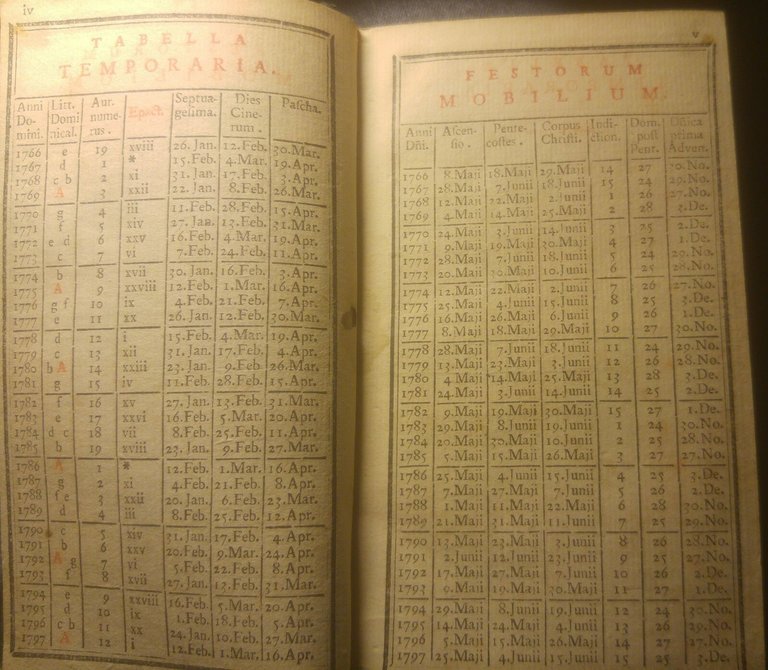 iv
TABELLA
TEMPORARIA.
Anni Domini. Litt. Dominical. Aur. numerus. Epact. Septuagesima. Dies Cinerum. Pascha.
1766 e 19 xviii 26. Jan. 12. Feb. 30. Mar.
1767 d 1 * 15. Feb. 4. Mar. 19. Apr.
1768 c b 2 xi 31. Jan. 17. Feb. 3. Apr.
1769 A 3 xxii 22. Jan. 8. Feb. 26. Mar.
1770 g 4 iii 11. Feb. 28. Feb. 15. Apr.
1771 f 5 xiv 27. Jan. 13. Feb. 31. Mar.
1772 e d 6 xxv 16. Feb. 4. Mar. 19. Apr.
1773 c 7 vi 7. Feb. 24. Feb. 11. Apr.
1774 b 8 xvii 30. Jan. 16. Feb. 3. Apr.
1775 A 9 xxviii 12. Feb. 1. Mar. 16. Apr.
1776 g f 10 ix 4. Feb. 21. Feb. 7. Apr.
1777 e 11 xx 26. Jan. 12. Feb. 30. Mar.
1778 d 12 i 15. Feb. 4. Mar. 19. Apr.
1779 c 13 xii 31. Jan. 17. Feb. 4. Apr.
1780 b A 14 xxiii 23. Jan. 9. Feb. 26. Mar.
1781 g 15 iv 11. Feb. 28. Feb. 15. Apr.
1782 f 16 xv 27. Jan. 13. Feb. 31. Mar.
1783 e 17 xxvi 16. Feb. 5. Mar. 20. Apr.
1784 d c 18 vii 8. Feb. 25. Feb. 11. Apr.
1785 b 19 xviii 23. Jan. 9. Feb. 27. Mar.
1786 A 1 * 12. Feb. 1. Mar. 16. Apr.
1787 g 2 xi 4. Feb. 21. Feb. 8. Apr.
1788 f e 3 xxii 20. Jan. 6. Feb. 23. Mar.
1789 d 4 iii 8. Feb. 25. Feb. 12. Apr.
1790 c 5 xiv 31. Jan. 17. Feb. 4. Apr.
1791 b 6 xxv 20. Feb. 9. Mar. 24. Apr.
1792 A g 7 vi 5. Feb. 22. Feb. 8. Apr.
1793 f 8 xvii 27. Jan. 13. Feb. 31. Mar.
1794 e 9 xxviii 16. Feb. 5. Mar. 20. Apr.
1795 d 10 ix 1. Feb. 18. Feb. 5. Apr.
1796 c b 11 xx 24. Jan. 10. Feb. 27. Mar.
1797 A 12 i 12. Feb. 1. Mar. 16. Apr.
v
FESTORUM
MOBILIUM.
Anni Dñi. Ascensio. Pentecostes. Corpus Christi. Indiction. Dom. post Pent. Dñica prima Adven.
1766 8. Maji 18. Maji 29. Maji 14 27 30. No.
1767 28. Maji 7. Junii 18. Junii 15 24 29. No.
1768 12. Maji 22. Maji 2. Junii 1 26 27. No.
1769 4. Maji 14. Maji 25. Maji 2 28 3. De.
1770 24. Maji 3. Junii 14. Junii 3 25 2. De.
1771 9. Maji 19. Maji 30. Maji 4 27 1. De.
1772 28. Maji 7. Junii 18. Junii 5 24 29. No.
1773 20. Maji 30. Maji 10. Junii 6 25 28. No.
1774 12. Maji 22. Maji 2. Junii 7 26 27. No.
1775 25. Maji 4. Junii 15. Junii 8 25 3. De.
1776 16. Maji 26. Maji 6. Junii 9 26 1. De.
1777 8. Maji 18. Maji 29. Maji 10 27 30. No.
1778 28. Maji 7. Junii 18. Junii 11 24 29. No.
1779 13. Maji 23. Maji 3. Junii 12 26 28. No.
1780 4. Maji 14. Maji 25. Maji 13 28 3. De.
1781 24. Maji 3. Junii 14. Junii 14 25 2. De.
1782 9. Maji 19. Maji 30. Maji 15 27 1. De.
1783 29. Maji 8. Junii 19. Junii 1 24 30. No.
1784 20. Maji 30. Maji 10. Junii 2 25 28. No.
1785 5. Maji 15. Maji 26. Maji 3 28 27. No.
1786 25. Maji 4. Junii 15. Junii 4 25 3. De.
1787 17. Maji 27. Maji 7. Junii 5 26 2. De.
1788 1. Maji 11. Maji 22. Maji 6 28 30. No.
1789 21. Maji 31. Maji 11. Junii 7 25 29. No.
1790 13. Maji 23. Maji 3. Junii 8 26 28. No.
1791 2. Junii 12. Junii 23. Junii 9 25 27. No.
1792 17. Maji 27. Maji 7. Junii 10 26 2. De.
1793 9. Maji 19. Maji 30. Maji 11 27 1. De.
1794 29. Maji 8. Junii 19. Junii 12 24 30. No.
1795 14. Maji 24. Maji 4. Junii 13 26 29. No.
1796 5. Maji 15. Maji 26. Maji 14 27 27. No.
1797 25. Maji 4. Junii 15. Junii 15 25 3. De.